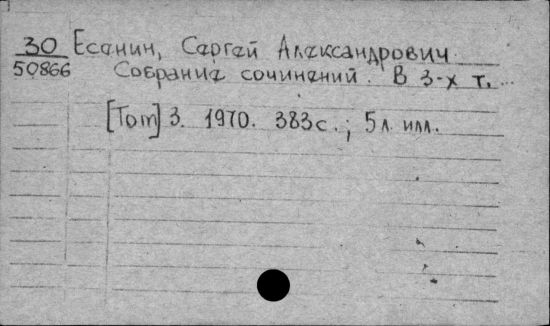 30 Есенин, Сергей Александрович
50866 Собрание сочинений. В 3-х т. ...
[Том] 3. 1970. 383с.; 5л. илл.